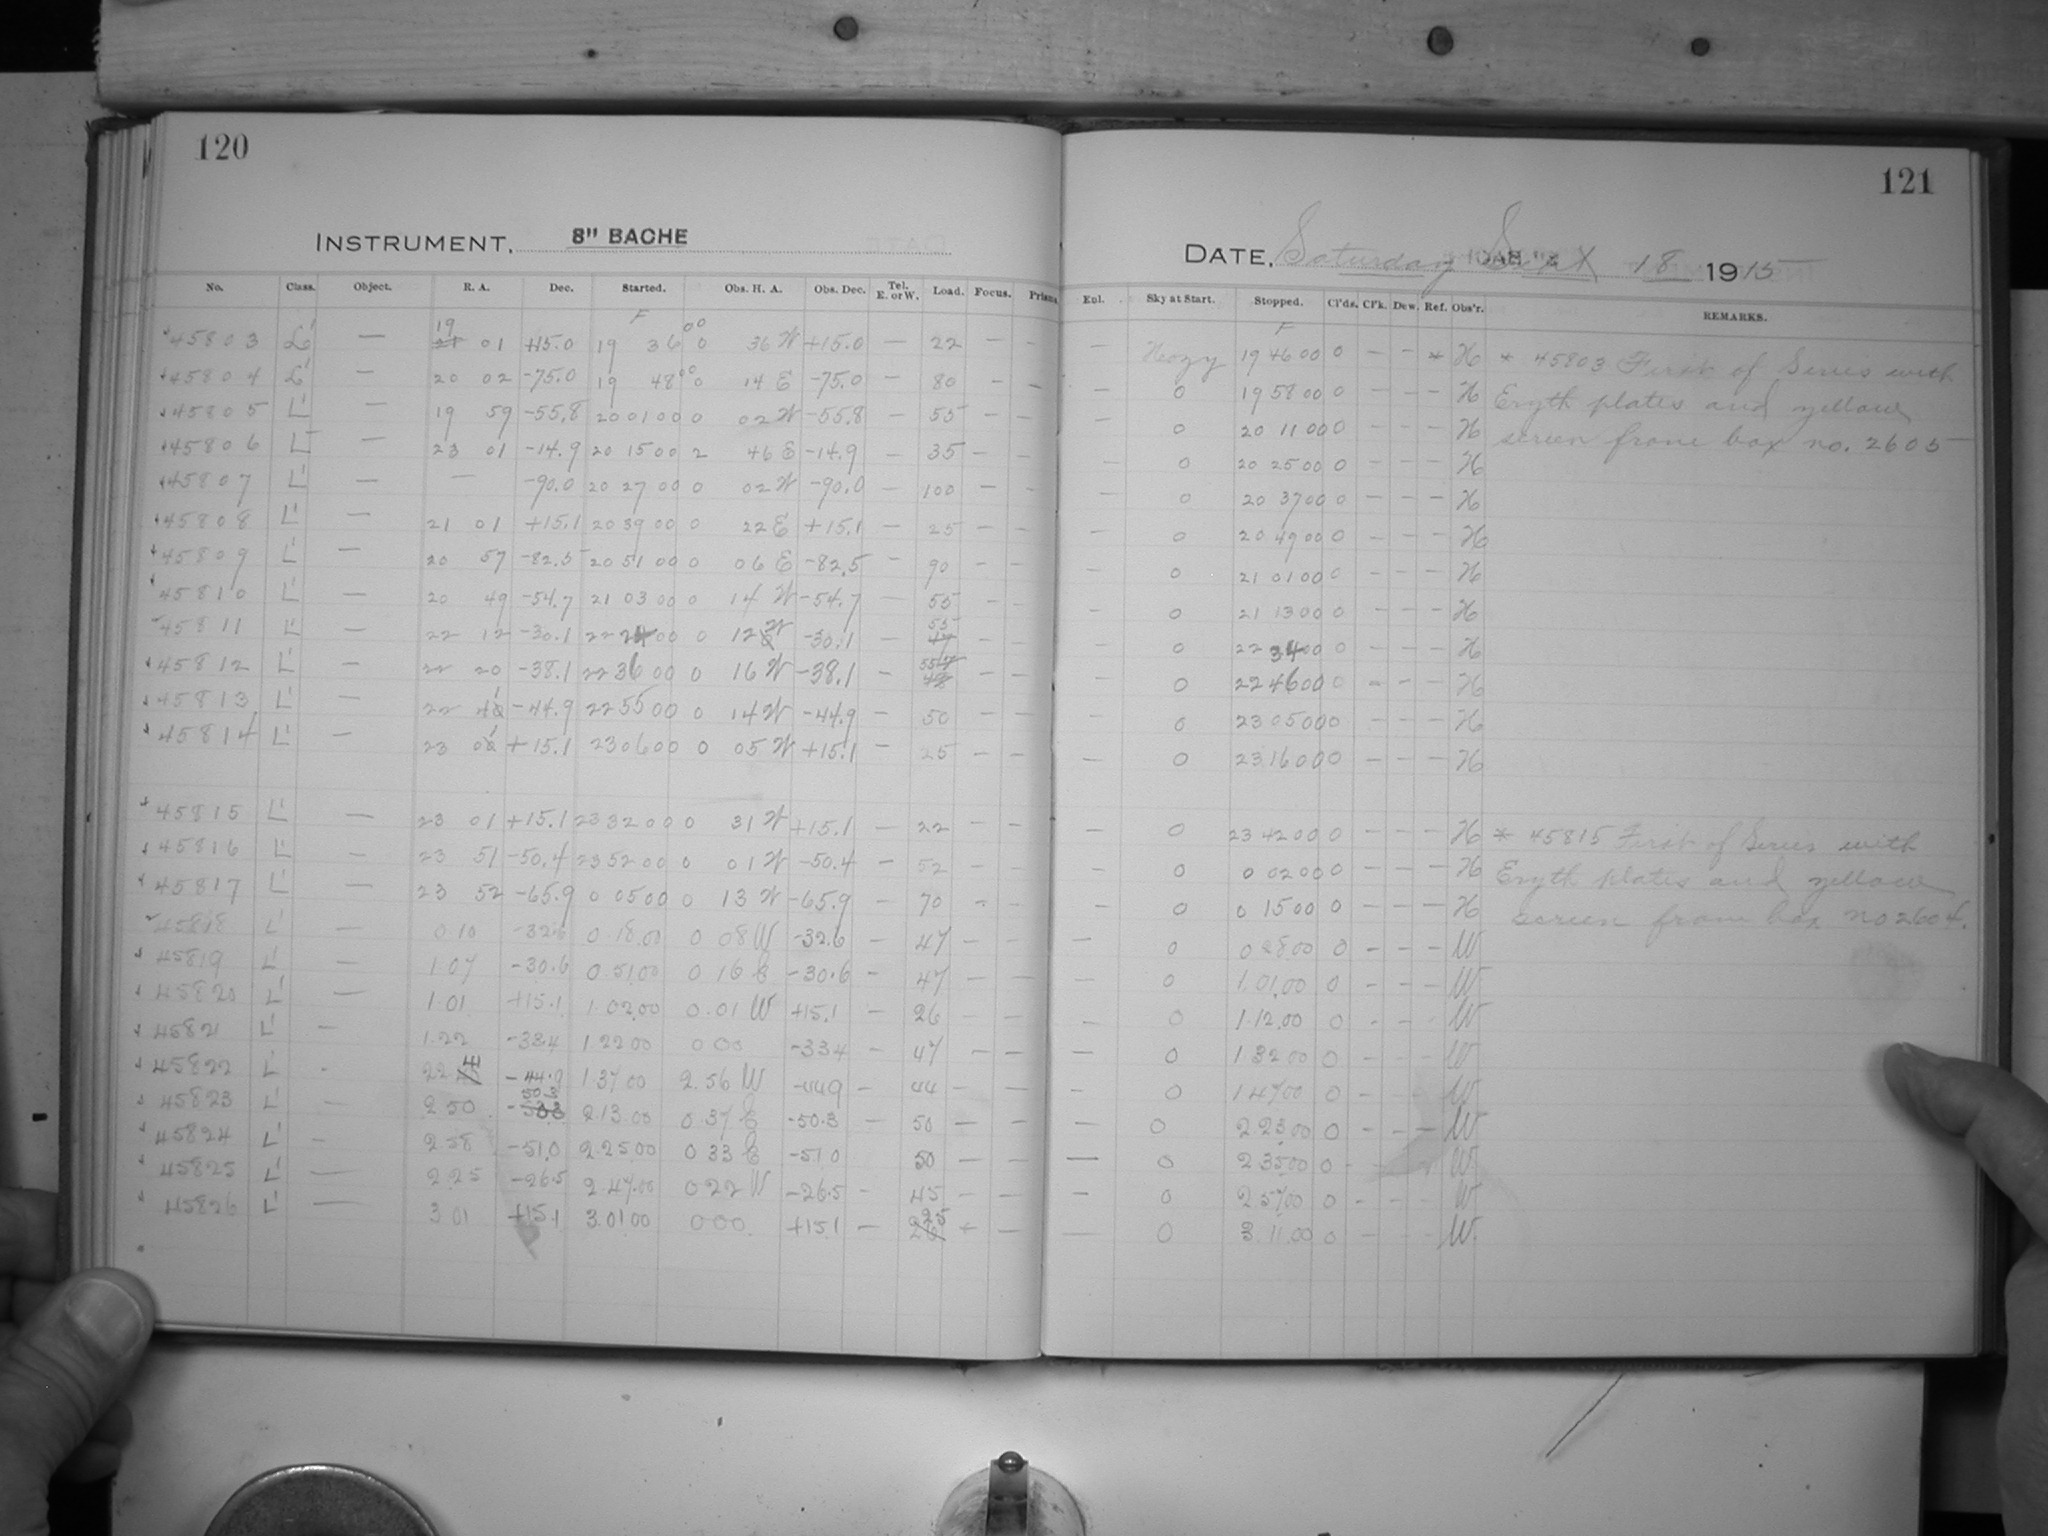 120
121
INSTRUMENT, 8" BACHE
DATE, Saturday Sept 18 1915
No. Class. Object. R. A. Dec. Started. Obs. H. A. Obs. Dec. Tel. E. or W. Load. Focus. Prism.
Eql. Sky at Start. Stopped. Cl'ds. Cl'k. Dew. Ref. Obs'r. REMARKS.
45803 L' — 19 01 +15.0 19 36 00 0 36 W +15.0 — 22 — — — Hazy 19 46 00 0 — — * H * 45803 First of Series with
45804 L' — 20 02 -75.0 19 48 00 0 14 E -75.0 — 80 — — — 0 19 58 00 0 — — — H Eryth plates and yellow
45805 L' — 19 59 -55.8 20 01 00 0 02 W -55.8 — 55 — — — 0 20 11 00 0 — — — H screen from box no. 2605
45806 L' — 23 01 -14.9 20 15 00 2 46 E -14.9 — 35 — — — 0 20 25 00 0 — — — H
45807 L' — — -90.0 20 27 00 0 02 W -90.0 — 100 — — — 0 20 37 00 0 — — — H
45808 L' — 21 01 +15.1 20 39 00 0 22 E +15.1 — 25 — — — 0 20 49 00 0 — — — H
45809 L' — 20 57 -82.5 20 51 00 0 06 E -82.5 — 90 — — — 0 21 01 00 0 — — — H
45810 L' — 20 49 -54.7 21 03 00 0 14 W -54.7 — 55 — — — 0 21 13 00 0 — — — H
45811 L' — 22 12 -30.1 22 24 00 0 12 W -30.1 — 55 — — — 0 22 34 00 0 — — — H
45812 L' — 22 20 -38.1 22 36 00 0 16 W -38.1 — — — — 0 22 46 00 0 — — — H
45813 L' — 22 41 -44.9 22 55 00 0 14 W -44.9 — 50 — — — 0 23 05 00 0 — — — H
45814 L' — 23 01 +15.1 23 06 00 0 05 W +15.1 — 25 — — — 0 23 16 00 0 — — — H
45815 L' — 23 01 +15.1 23 32 00 0 31 W +15.1 — 22 — — — 0 23 42 00 0 — — — H * 45815 First of Series with
45816 L' — 23 51 -50.4 23 52 00 0 01 W -50.4 — 52 — — — 0 0 02 00 0 — — — H Eryth plates and yellow
45817 L' — 23 52 -65.9 0 05 00 0 13 W -65.9 — 70 — — — 0 0 15 00 0 — — — H screen from box no 2604.
45818 L' — 0.10 -32.6 0.18.00 0 08 W -32.6 — 47 — — — 0 0 28 00 0 — — — W
45819 L' — 1.07 -30.6 0.51.00 0 16 E -30.6 — 47 — — — 0 1.01.00 0 — — — W
45820 L' — 1.01 +15.1 1.02.00 0.01 W +15.1 — 26 — — — 0 1.12.00 0 — — — W
45821 L' — 1.22 -33.4 1 22 00 0 00 -33.4 — 47 — — — 0 1 32 00 0 — — — W
45822 L' - 22 41 -44.9 1.37 00 2.56 W -44.9 — 44 — — — 0 1 47 00 0 — — — W
45823 L' — 2 50 -50.3 2.13.00 0.37 E -50.3 — 50 — — — 0 2 23 00 0 — — — W
45824 L' — 2 58 -51.0 2.25 00 0 33 E -51.0 50 — — — 0 2 35 00 0 - W
45825 L' — 2.25 -26.5 2.47.00 0 22 W -26.5 — 45 — — — 0 2 57 00 0 — — — W
45826 L' — 3 01 +15.1 3.01 00 0 00 +15.1 — 25 — — — 0 3.11.00 0 — — — W.